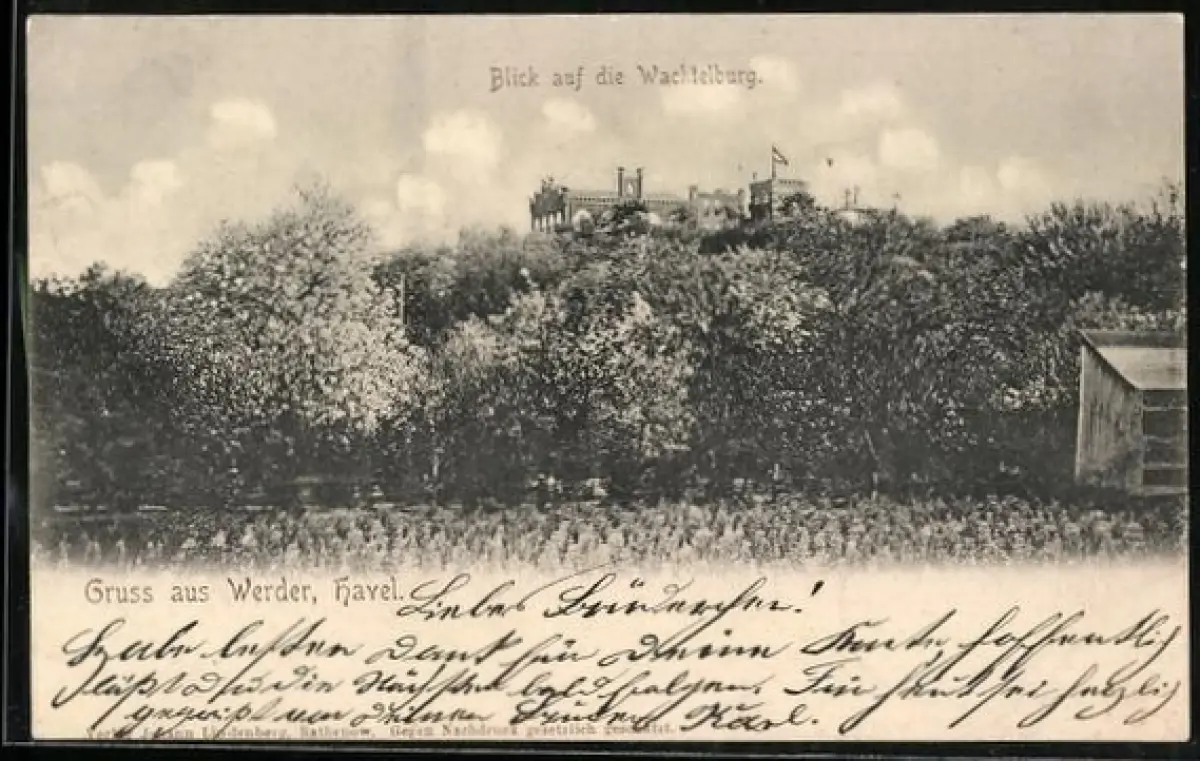 Blick auf die Wachtelburg.
Gruss aus Werder, Havel.
Liebes Brüderchen!
Habe besten Dank für Deine Karte, hoffentlich
läßt du die Nächste bald folgen. Für heut sei herzlich
gegrüßt von Deinem Bruder Karl.
Verlag Johann Lindenberg, Rathenow. Gegen Nachdruck gesetzlich geschützt.